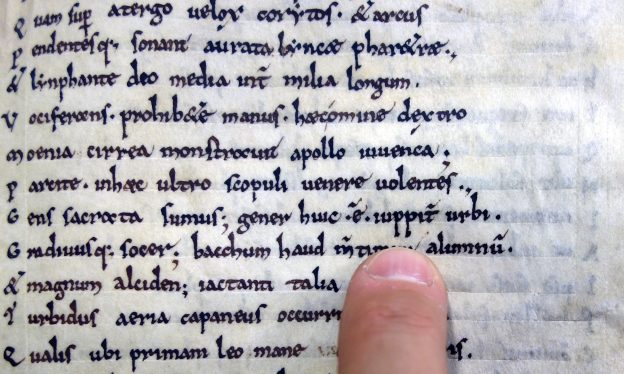 Q uam sup atergo velox corytos · & arcus
p endentesq; sonant aurata lyncae phar&rae.,
& lymphante deo media int milia longum.
v ociferans · prohib&e manus · haecomine dextro
moenia cirrea monstravit apollo iuvenca;
p arcite · inhaec ultro scopuli venere volentes.,
G ens sacrata sumus; gener huic · ē · iuppit urbi.
G radivusq; socer; bacchum haud alumnū.
& magnum alciden; iactanti talia
T urbidus aeria capaneus
Q ualis ubi primam leo mane